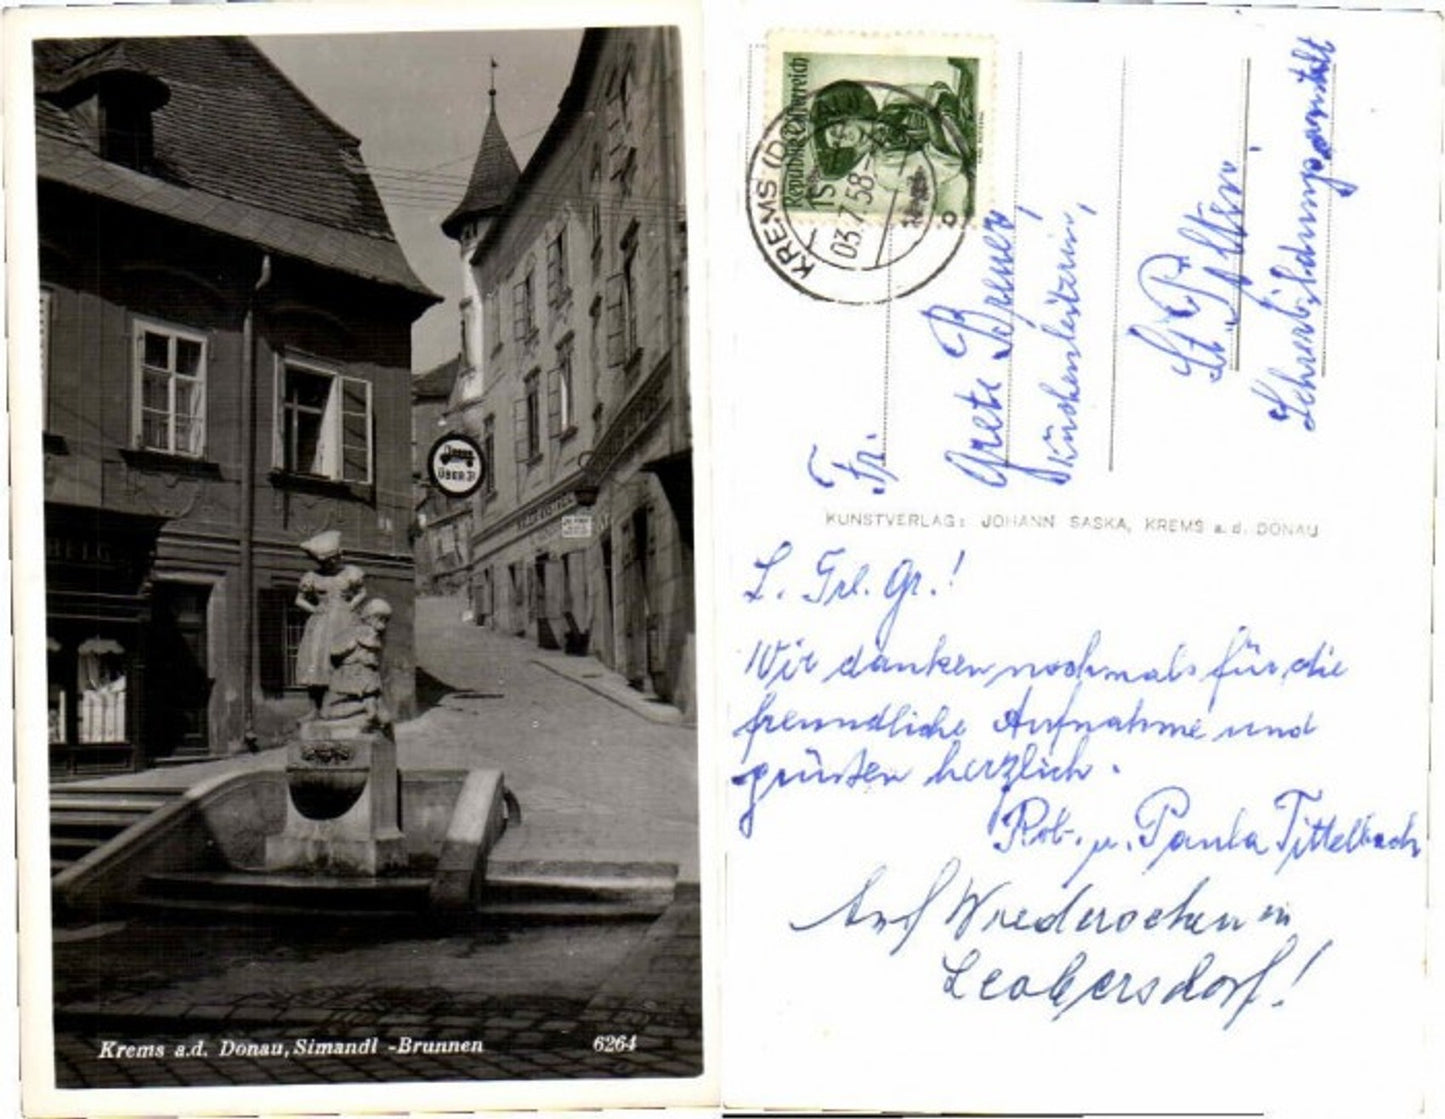 ÜBER 3t
Krems a.d. Donau, Simandl -Brunnen
6264
Republik Österreich
1 S
KREMS (D
03.7.58
Fr.
Grete
St Pölten,
KUNSTVERLAG: JOHANN SASKA, KREMS a. d. DONAU
L. Frl. Gr.!
Wir danken nochmals für die
freundliche Aufnahme und
grüßen herzlich.
Rob. u. Paula Tittelbach
Auf Wiedersehen in
Leobersdorf!